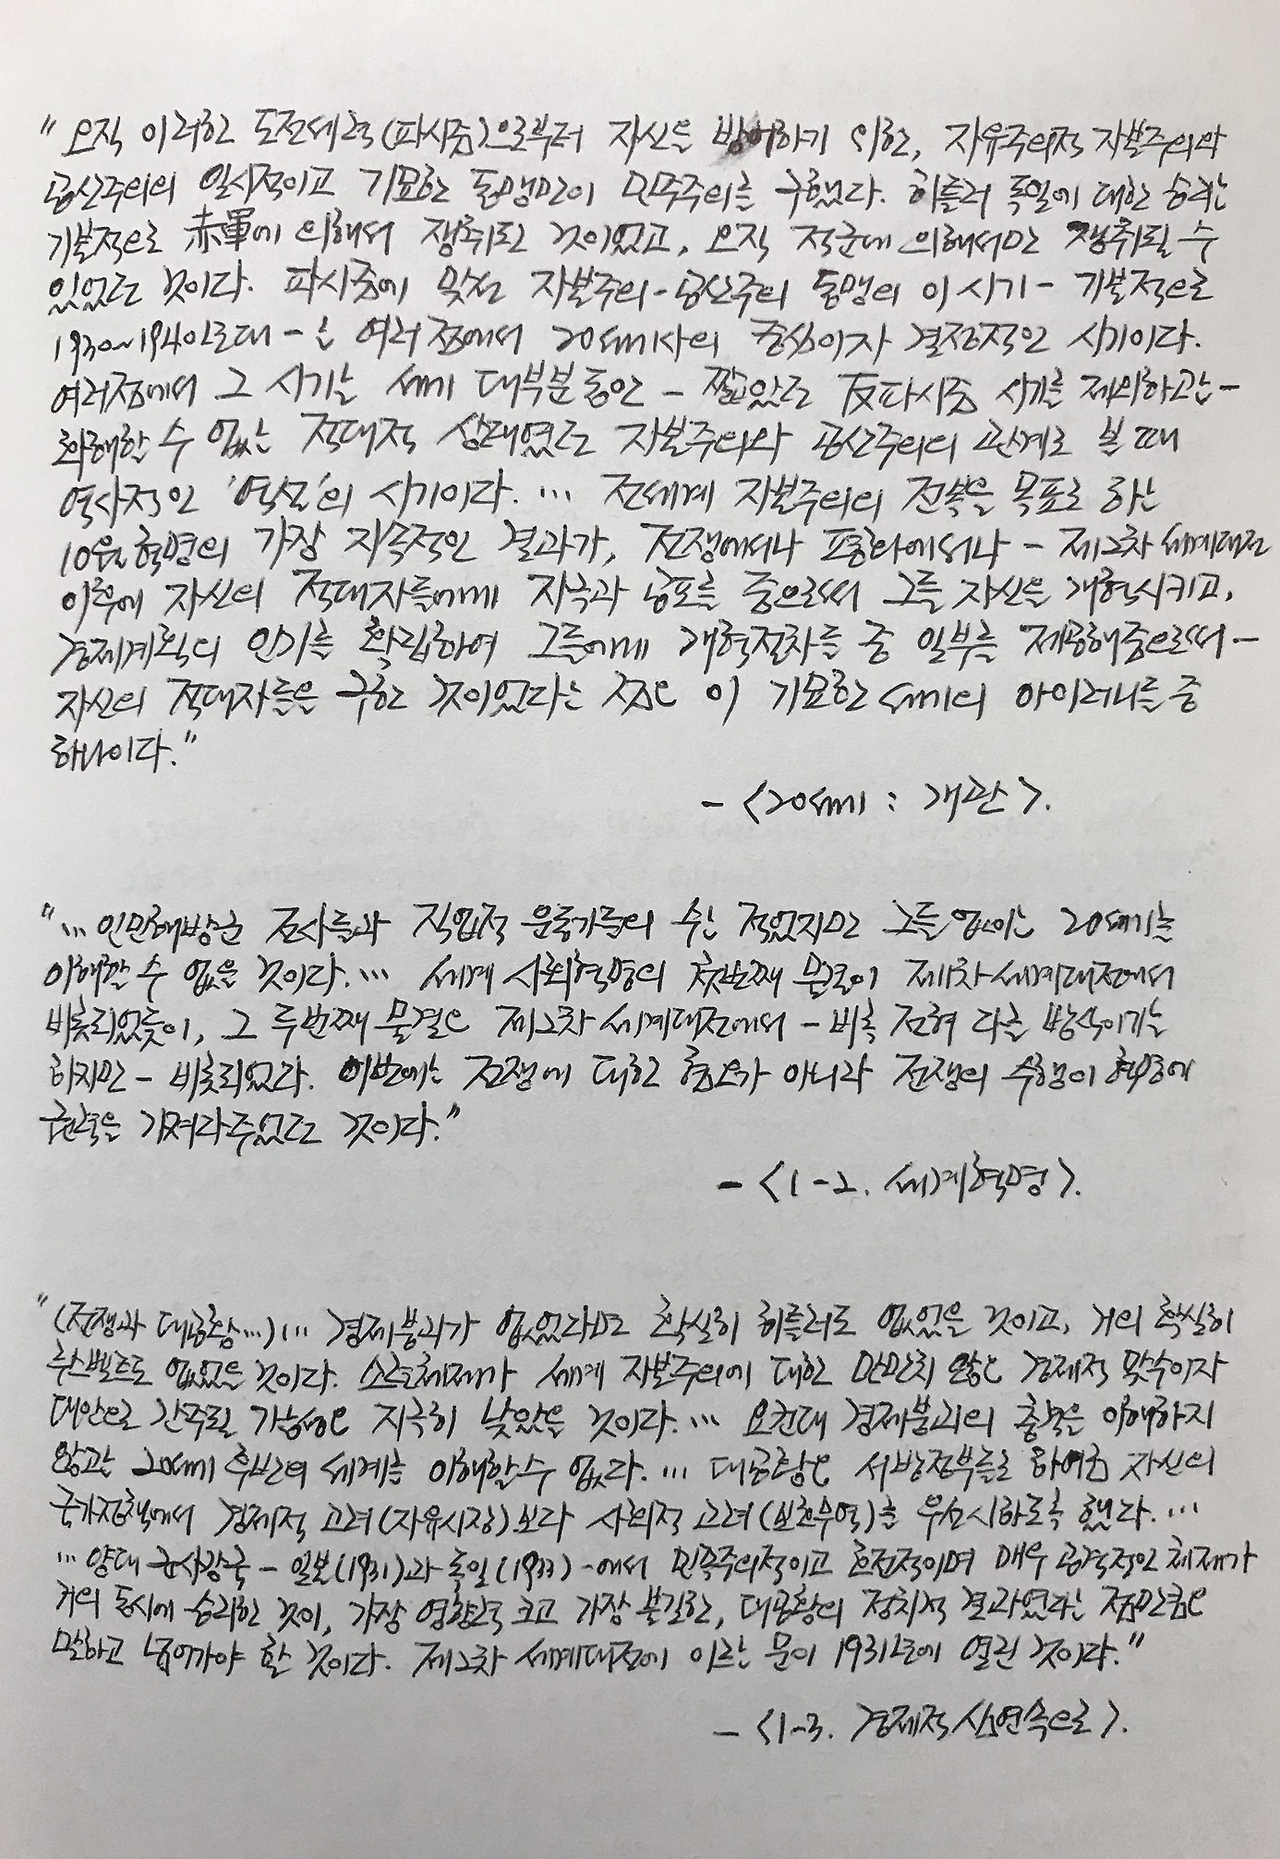 " 오직 이러한 도전세력(파시즘)으로부터 자신을 방어하기 위한, 자유주의적 자본주의와
공산주의의 일시적이고 기묘한 동맹만이 민주주의를 구했다. 히틀러 독일에 대한 승리는
기본적으로 赤軍에 의해서 쟁취된 것이었고, 오직 적군에 의해서만 쟁취될 수
있었던 것이다. 파시즘에 맞선 자본주의-공산주의 동맹의 이 시기 - 기본적으로
1930~1940년대 - 는 여러 점에서 20세기사의 중심이자 결정적인 시기이다.
여러점에서 그 시기는 세기 대부분 동안 - 짧았던 反파시즘 시기를 제외하곤 -
화해할 수 없는 적대적 상태였던 자본주의와 공산주의의 관계로 볼 때
역사적인 '역설'의 시기이다. … 전세계 자본주의의 전복을 목표로 하는
10월 혁명의 가장 지속적인 결과가, 전쟁에서나 평화에서나 - 제2차 세계대전
이후에 자신의 적대자들에게 자극과 공포를 줌으로써 그들 자신을 개혁시키고,
경제계획의 인기를 확립하여 그들에게 개혁절차들 중 일부를 제공해줌으로써 -
자신의 적대자들을 구한 것이었다는 점은 이 기묘한 세기의 아이러니들 중
하나이다."
- <20세기 : 개관>.
"… 인민해방군 전사들과 직업적 운동가들의 수는 적었지만 그들 없이는 20세기를
이해할 수 없을 것이다. … 세계 사회혁명의 첫번째 물결이 제1차 세계대전에서
비롯되었듯이, 그 두번째 물결은 제2차 세계대전에서 - 비록 전혀 다른 방식이기는
하지만 - 비롯되었다. 이번에는 전쟁에 대한 혐오가 아니라 전쟁의 수행이 혁명에
권력을 가져다주었던 것이다."
- <1-2. 세계혁명>.
" (전쟁과 대공황…) … 경제붕괴가 없었다면 확실히 히틀러도 없었을 것이고, 거의 확실히
루스벨트도 없었을 것이다. 소련체제가 세계 자본주의에 대한 만만치 않은 경제적 맞수이자
대안으로 간주될 가능성은 지극히 낮았을 것이다. … 요컨대 경제붕괴의 충격을 이해하지
않곤 20세기 후반의 세계를 이해할수 없다. … 대공황은 서방정부들로 하여금 자신의
국가정책에서 경제적 고려(자유시장)보다 사회적 고려(보호무역)를 우선시하도록 했다. …
… 양대 군사강국 - 일본(1931)과 독일(1933) - 에서 민족주의적이고 호전적이며 매우 공격적인 체제가
거의 동시에 승리한 것이, 가장 영향력 크고 가장 불길한, 대공황의 정치적 결과였다는 점만큼은
말하고 넘어가야 할 것이다. 제2차 세계대전에 이르는 문이 1931년에 열린 것이다."
- <1-3. 경제적 심연속으로>.